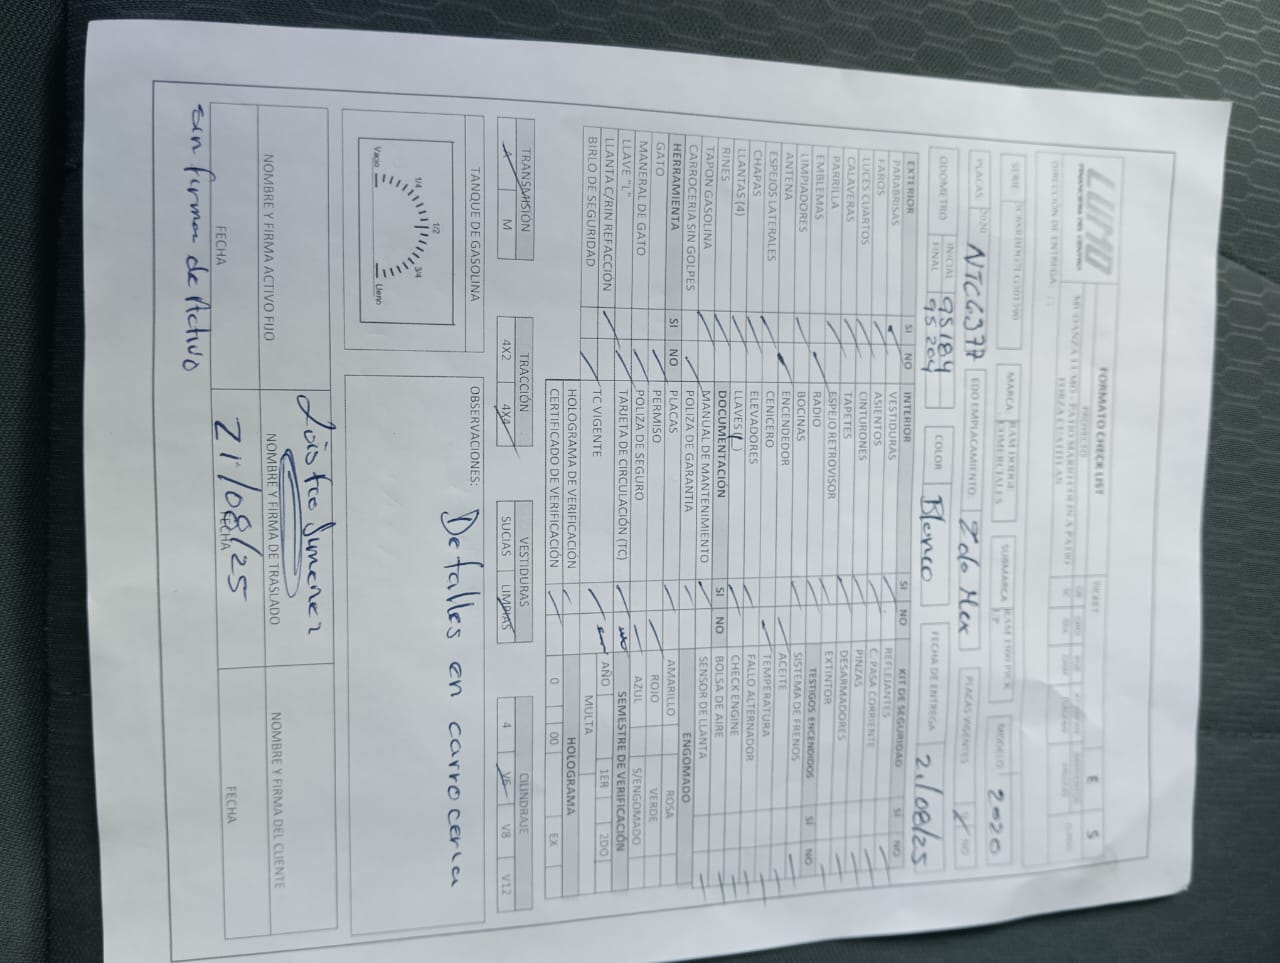 LUMO
FINANCIERA DEL CENTRO
FORMATO CHECK LIST
PROYECTO
TICKET
E
S
DIRECCIÓN DE ENTREGA:
SERIE
MARCA
RAM DODGE
COMERCIALES
SUBMARCA
MODELO
2020
PLACAS
NTC6377
EDO EMPLACAMIENTO:
Edo Mex
PLACAS VIGENTES
NO
ODOMETRO
INICIAL
95184
FINAL
95204
COLOR
Blanco
FECHA DE ENTREGA
21/08/25
EXTERIOR SI NO
PARABRISAS
FAROS
LUCES CUARTOS
CALAVERAS
PARRILLA
EMBLEMAS
LIMPIADORES
ANTENA
ESPEJOS LATERALES
CHAPAS
LLANTAS (4)
RINES
TAPON GASOLINA
CARROCERIA SIN GOLPES
HERRAMIENTA SI NO
GATO
MANERAL DE GATO
LLAVE "L"
LLANTA C/RIN REFACCIÓN
BIRLO DE SEGURIDAD
INTERIOR SI NO
VESTIDURAS
ASIENTOS
CINTURONES
TAPETES
ESPEJO RETROVISOR
RADIO
BOCINAS
ENCENDEDOR
CENICERO
ELEVADORES
LLAVES ( )
DOCUMENTACIÓN SI NO
MANUAL DE MANTENIMIENTO
POLIZA DE GARANTIA
PLACAS
PERMISO
POLIZA DE SEGURO
TARJETA DE CIRCULACIÓN (TC)
TC VIGENTE
HOLOGRAMA DE VERIFICACIÓN
CERTIFICADO DE VERIFICACIÓN
KIT DE SEGURIDAD SI NO
REFLEJANTES
C. PASA CORRIENTE
PINZAS
DESARMADORES
EXTINTOR
TESTIGOS ENCENDIDOS SÍ NO
SISTEMA DE FRENOS
ACEITE
TEMPERATURA
FALLO ALTERNADOR
CHECK ENGINE
BOLSA DE AIRE
SENSOR DE LLANTA
ENGOMADO
AMARILLO ROSA
ROJO VERDE
AZUL S/ENGOMADO
SEMESTRE DE VERIFICACIÓN
AÑO 1ER 2DO
MULTA
HOLOGRAMA
0 00 EX
TRANSMISIÓN
A M
TRACCIÓN
4X2 4X4
VESTIDURAS
SUCIAS LIMPIAS
CILINDRAJE
4 V6 V8 V12
TANQUE DE GASOLINA
1/4 1/2 3/4
Vacio Lleno
OBSERVACIONES:
Detalles en carroceria
NOMBRE Y FIRMA ACTIVO FIJO
NOMBRE Y FIRMA DE TRASLADO
NOMBRE Y FIRMA DEL CLIENTE
FECHA
21/08/25
FECHA
FECHA
sin firma de Activo